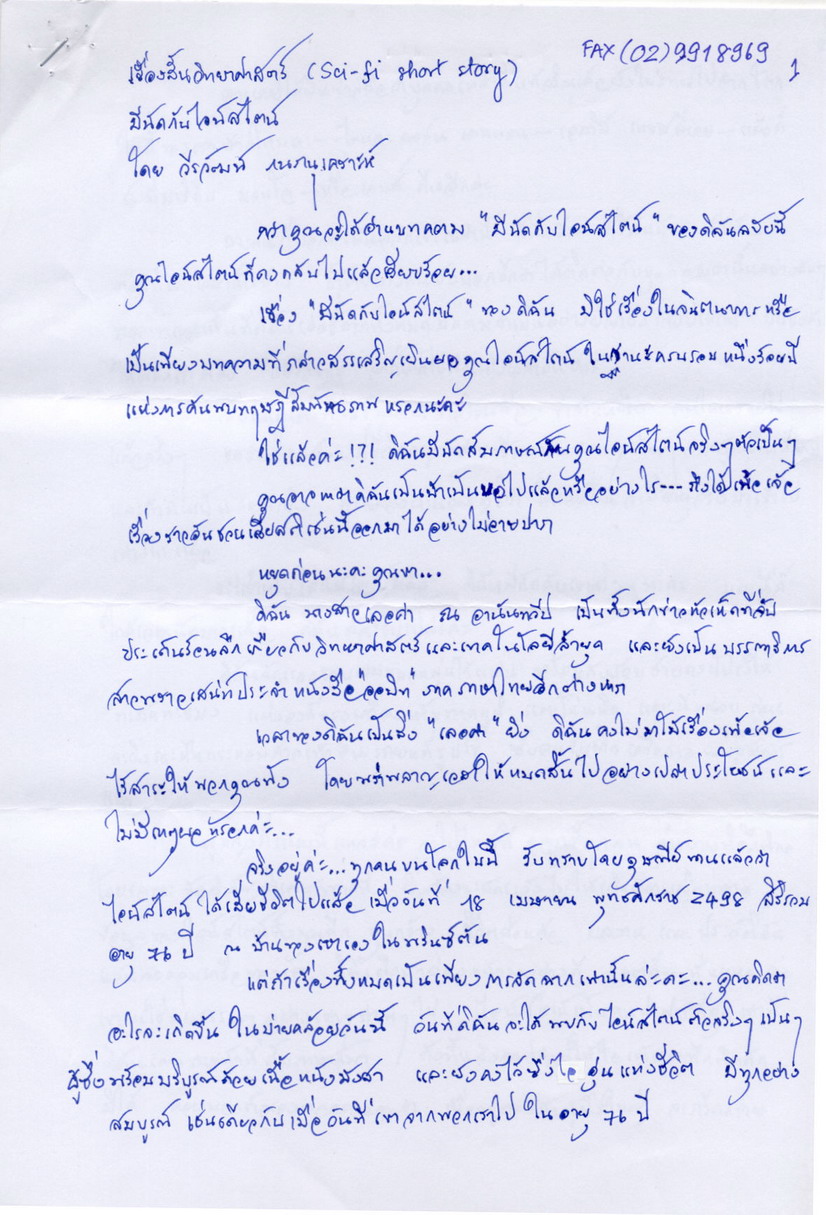 FAX (02) 9918969
1
เรื่องสั้นวิทยาศาสตร์ (Sci-fi short story)
มีนัดกับไอน์สไตน์
โดย วีรวัฒน์ กนกนุเคราะห์
กว่าคุณจะได้อ่านบทความ "มีนัดกับไอน์สไตน์" ของดิฉันฉบับนี้
คุณไอน์สไตน์ก็คงกลับไปแล้วเรียบร้อย...
เรื่อง "มีนัดกับไอน์สไตน์" ของดิฉัน มิใช่เรื่องในจินตนาการ หรือ
เป็นเพียงบทความที่กล่าวสรรเสริญเยินยอคุณไอน์สไตน์ ในฐานะครบรอบ หนึ่งร้อยปี
แห่งการค้นพบทฤษฎีสัมพัทธภาพ หรอกนะคะ
ใช่แล้วค่ะ !?! ดิฉันมีนัดสัมภาษณ์กับคุณไอน์สไตน์จริงๆตัวเป็นๆ
คุณอาจหาว่าดิฉันเป็นบ้าเป็นบอไปแล้วหรืออย่างไร --- ถึงได้เพ้อเจ้อ
เรื่องราวอันชวนเสียสติเช่นนี้ออกมาได้อย่างไม่อายปาก
หยุดก่อนนะคะคุณขา...
ดิฉัน นางสาวเลอค่า ณ อานันทวีป เป็นทั้งนักข่าวหัวเห็ดที่จับ
ประเด็นร้อนลึกเกี่ยวกับวิทยาศาสตร์และเทคโนโลยีล้ำยุค และยังเป็นบรรณาธิการ
สาวพราวเสน่ห์ประจำหนังสือ ภาคภาษาไทยอีกต่างหาก
เวลาของดิฉันเป็นสิ่ง "เลอค่า" ยิ่ง ดิฉันคงไม่มาใช้เรื่องเพ้อเจ้อ
ไร้สาระให้พวกคุณฟัง โดยพร่าผลาญเวลาให้หมดสิ้นไปอย่างเปล่าประโยชน์และ
ไม่มีเหตุผลหรอกค่ะ...
จริงอยู่ค่ะ...ทุกคนบนโลกใบนี้ รับทราบโดยดุษณีย์ แล้วว่า
ไอน์สไตน์ ได้เสียชีวิตไปแล้ว เมื่อวันที่ 18 เมษายน พุทธศักราช 2498 สิริรวม
อายุ 76 ปี ณ บ้านของเขาเองในพรินซ์ตัน
แต่ถ้าเรื่องทั้งหมดเป็นเพียงการจัดฉากเท่านั้นล่ะคะ... คุณคิดว่า
อะไรจะเกิดขึ้น ในบ่ายคล้อยวันนี้ วันที่ดิฉันจะได้พบกับไอน์สไตน์ตัวจริงๆเป็นๆ
ผู้ซึ่งพร้อมบริบูรณ์ด้วยเนื้อหนังมังสา และยังคงไว้ซึ่งไออุ่นแห่งชีวิต มีทุกอย่าง
สมบูรณ์ เช่นเดียวกับเมื่อวันที่เขาจากพวกเราไป ในอายุ 76 ปี